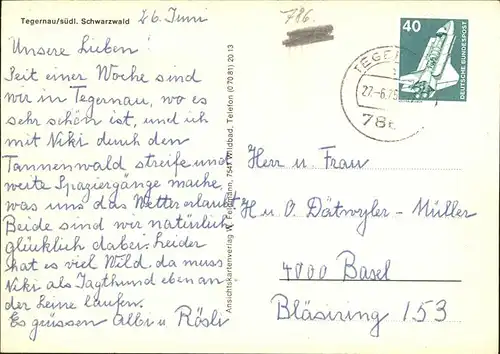 Tegernau/südl. Schwarzwald
26. Juni
Unsere Lieben!
Seit einer Woche sind
wir in Tegernau, wo es
sehr schön ist, und ich
mit Niki durch den
Tannenwald streife und
weite Spaziergänge mache,
was uns das Wetter erlaubt
Beide sind wir natürlich
glücklich dabei. Leider
hat es viel Wild, da muss
Niki als Jagthund eben an
der Leine laufen.
Es grüssen Albi u Rösli
Ansichtskartenverlag W. Feldmann, 7547 Wildbad, Telefon (0 70 81) 20 13
786.
TEGE
27.-6.75
786
40
DEUTSCHE BUNDESPOST
Herr u. Frau
H u. O. Dätwyler-Müller
4000 Basel
Bläsiring 153